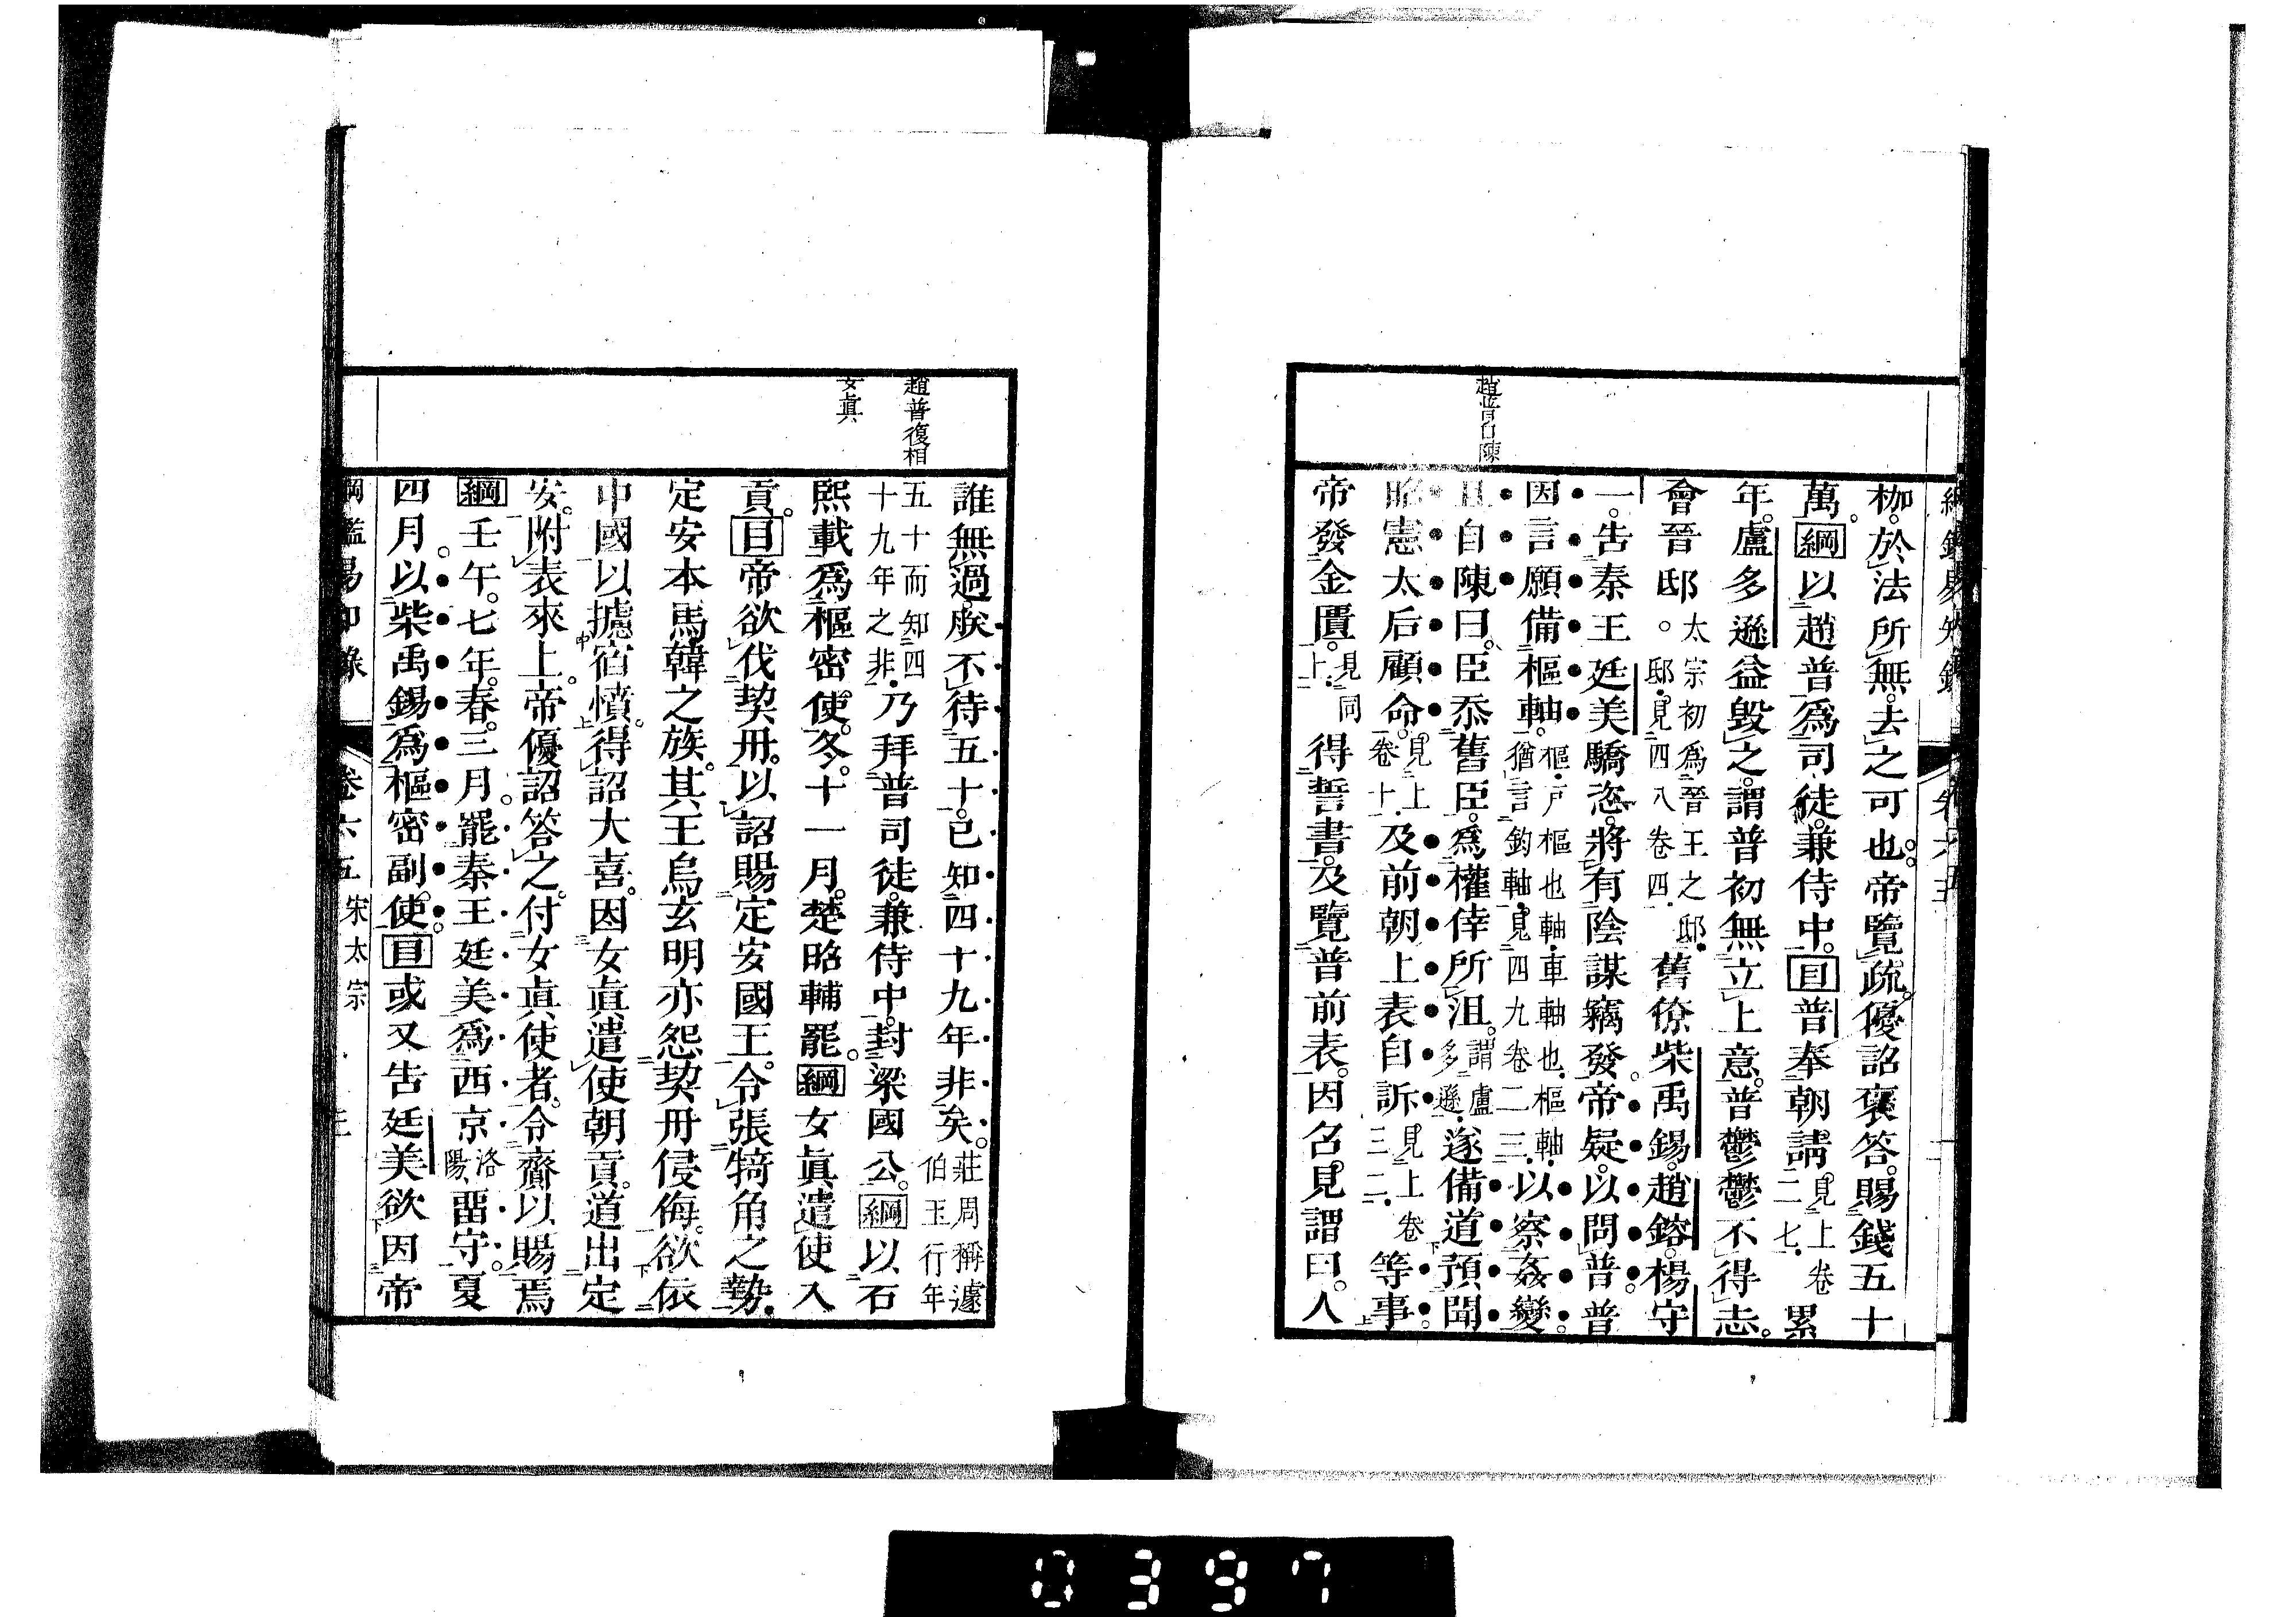 趙普自陳
枷。於法所無。去之可也。帝覽疏。優詔褒答。賜錢五十
萬。綱以趙普爲司徒。兼侍中。目普奉朝請。見上卷二七。累
年。盧多遜益毀之。謂普初無立上意。普鬱鬱不得志。
會晉邸。太宗初爲晉王之邸。邸見四八卷四。舊僚柴禹錫。趙鎔。楊守
一。告秦王廷美驕恣。將有陰謀竊發。帝疑。以問普。普
因言願備樞軸。樞戶樞也軸車軸也樞軸猶言鈞軸見四九卷二三。以察姦變。
且自陳曰。臣忝舊臣。爲權倖所沮。謂盧多遜。遂備道預聞
昭憲太后顧命。見上卷十。及前朝上表自訴。見上卷三二。等事。
帝發金匱。見同上。得誓書。及覽普前表。因召見謂曰。人
趙普復相
女眞
誰無過。朕不待五十。已知四十九年非矣。莊周稱蘧伯玉行年
五十而知四十九年之非。乃拜普司徒。兼侍中。封梁國公。綱以石
熙載爲樞密使。冬。十一月。楚昭輔罷。綱女眞遣使入
貢。目帝欲伐契丹。以詔賜定安國王。令張犄角之勢。
定安本馬韓之族。其王烏玄明亦怨契丹侵侮。欲依
中國以攄宿憤。得詔大喜。因女眞遣使朝貢。道出定
安。附表來上。帝優詔答之。付女眞使者。令齎以賜焉
綱壬午。七年。春。三月。罷秦王廷美爲西京洛陽。畱守。夏
四月。以柴禹錫爲樞密副使。目或又告廷美欲因帝
綱鑑易知錄 卷六五 宋太宗